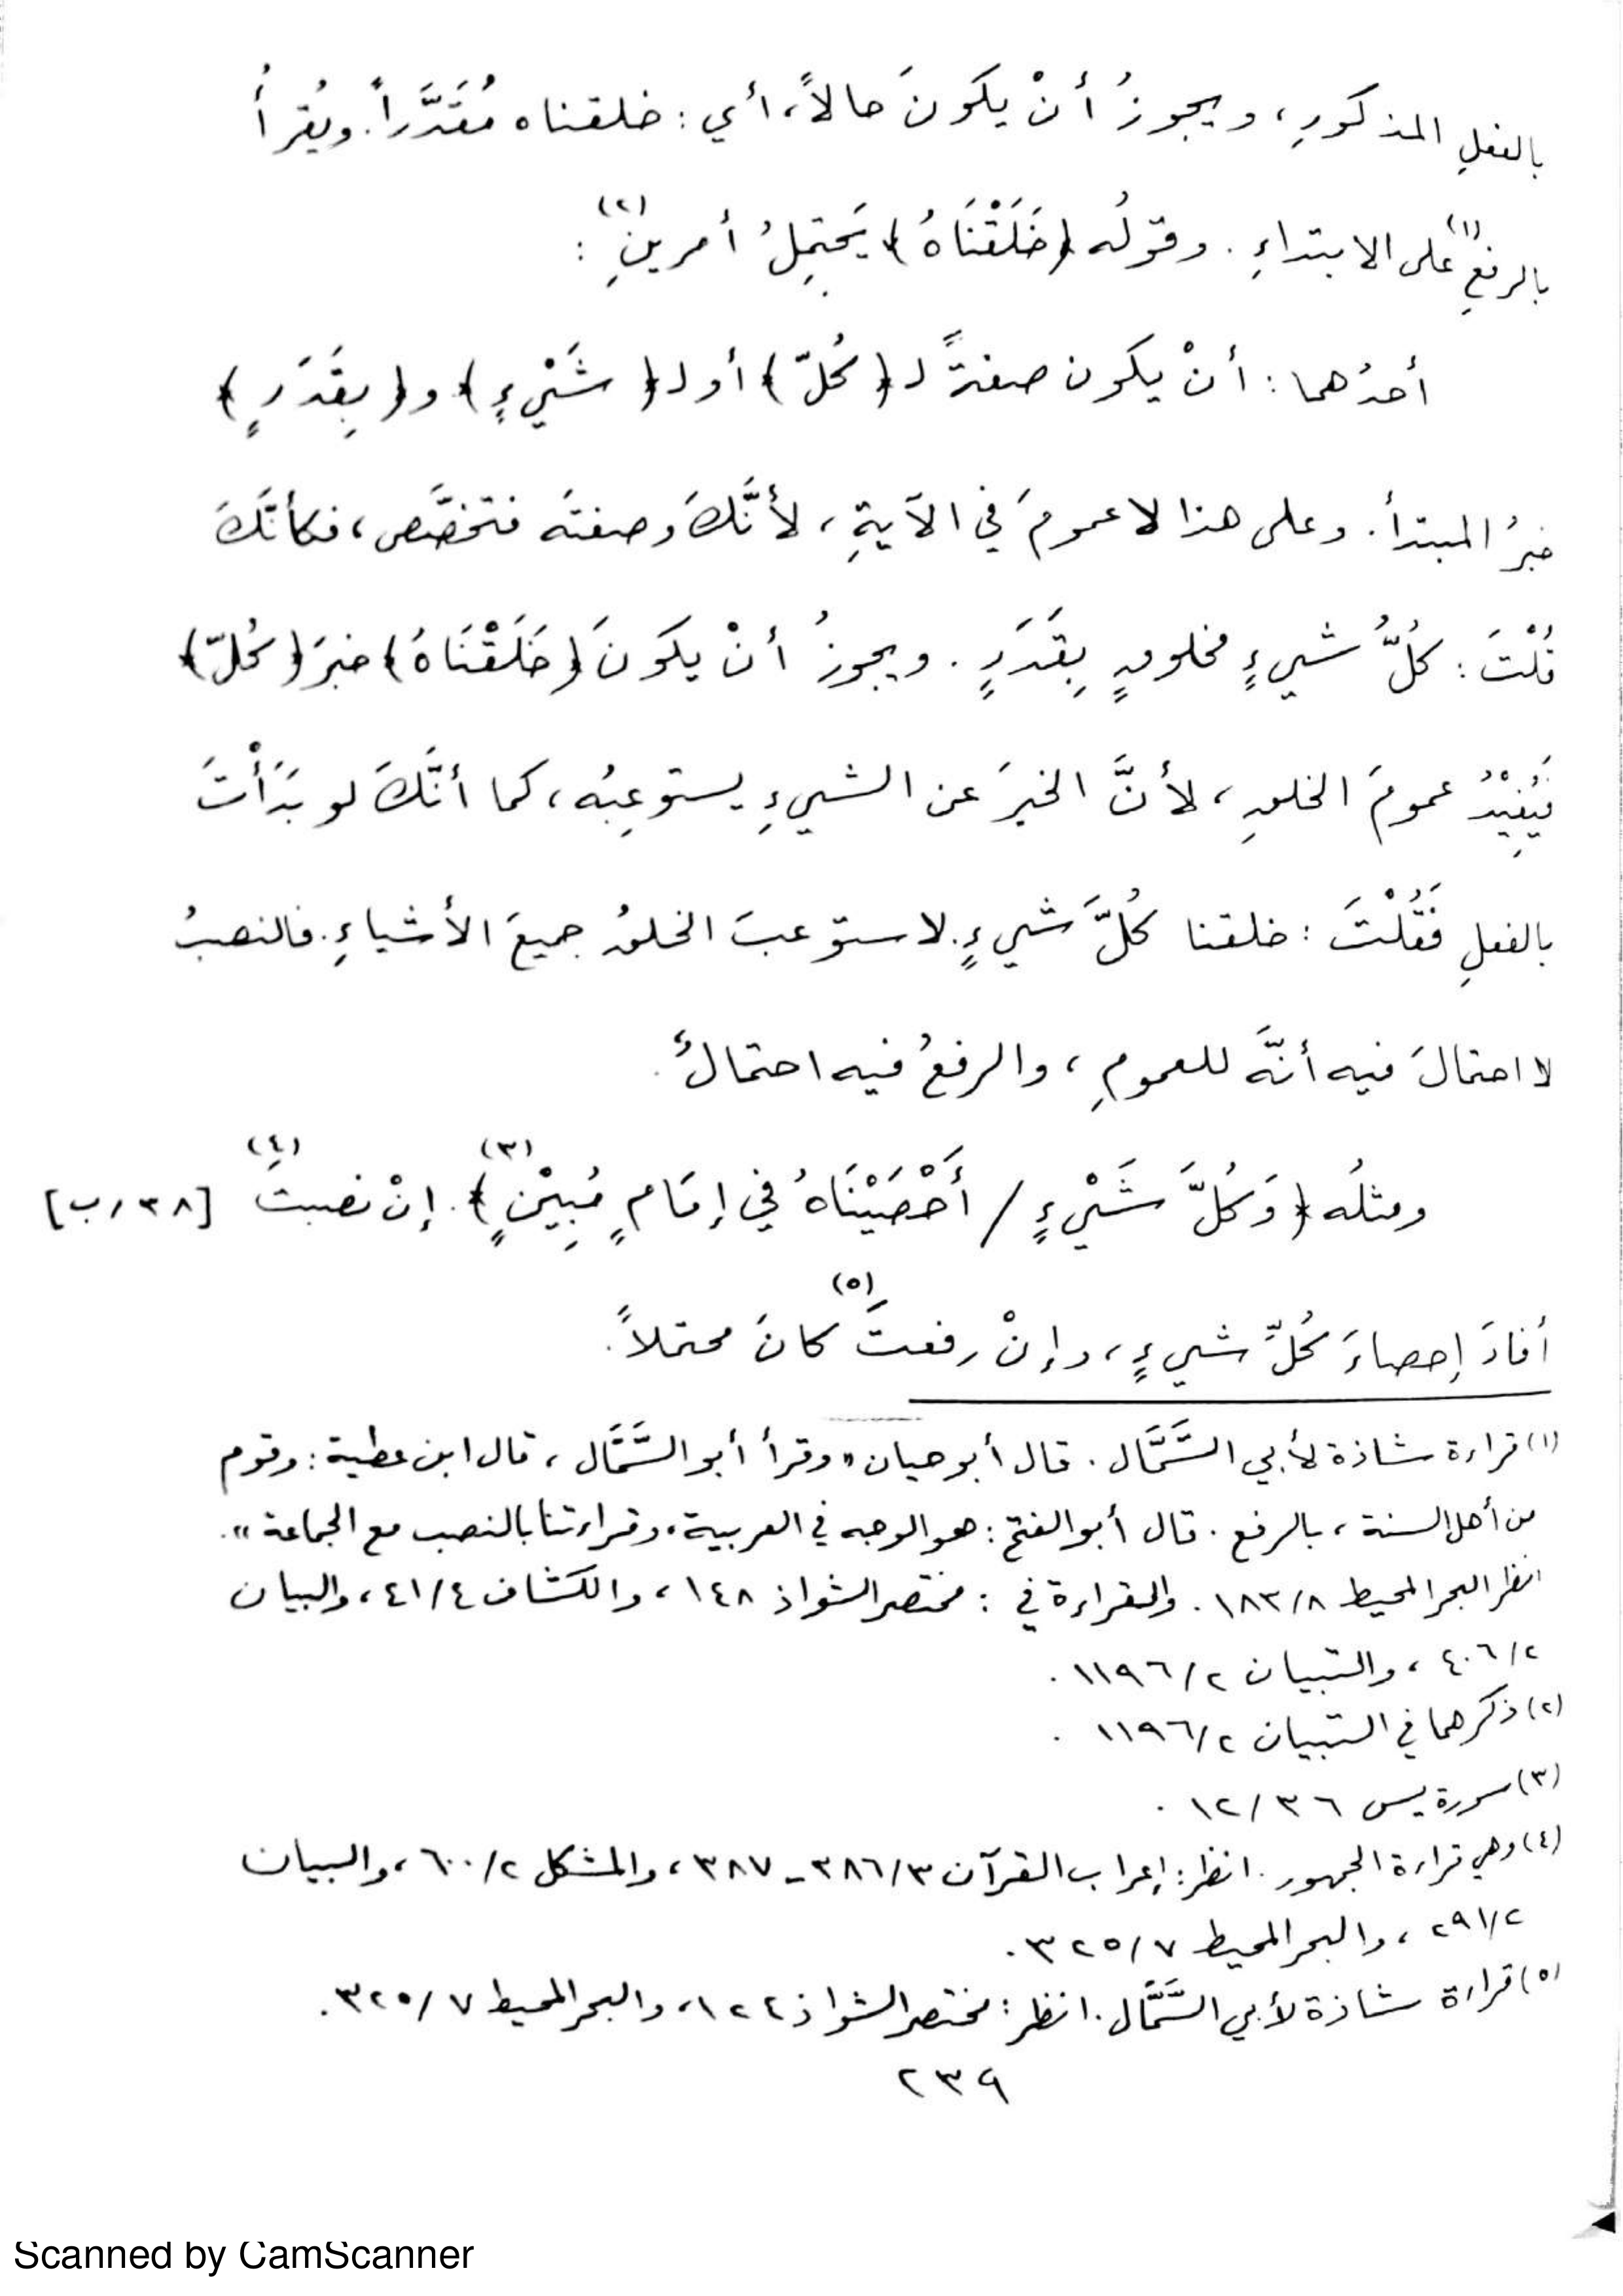 بالفعلِ المذكورِ، ويجوزُ أنْ يكونَ حالاً، أي: خلقناه مُقَدَّراً. ويُقرأُ
بالرفعِ(١) على الابتداءِ. وقولُه ﴿خَلَقْنَاهُ﴾ يَحتمِلُ أمرينِ(٢):
أحدُهما: أنْ يكون صفةً لـ ﴿كُلّ﴾ أو لـ ﴿شَيْءٍ﴾ و ﴿بِقَدَرٍ﴾
خبرُ المبتدأ. وعلى هذا لا عمومَ في الآيةِ، لأنَّكَ وصفتَه فتخصَّص، فكأنَّكَ
قُلْتَ: كُلُّ شيءٍ مخلوقٍ بِقَدَرٍ. ويجوزُ أنْ يكونَ ﴿خَلَقْنَاهُ﴾ خبرَ ﴿كُلّ﴾
فَيُفِيْدُ عمومَ الخلقِ، لأنَّ الخبرَ عن الشيءِ يستوعِبُه، كما أنَّكَ لو بَدَأْتَ
بالفعلِ فَقُلْتَ: خلقنا كُلَّ شيءٍ. لاستوعبَ الخلقُ جميعَ الأشياءِ. فالنصبُ
لا احتمالَ فيه أنَّه للعمومِ، والرفعُ فيه احتمالٌ.
ومثلُه ﴿وَكُلَّ شَيْءٍ / أَحْصَيْنَاهُ في إمَامٍ مُبِيْنٍ﴾(٣). إنْ نصبتَ(٤) [٣٨/ب]
أفادَ إحصاءَ كُلِّ شيءٍ، وإنْ رفعتَ(٥) كانَ محتملاً.
(١) قراءة شاذة لأبي السَّمَّال. قال أبو حيان «وقرأ أبو السَّمَّال، قال ابن عطية: وقوم
من أهل السنة، بالرفع. قال أبو الفتح: هو الوجه في العربية، وقراءتنا بالنصب مع الجماعة».
انظر البحر المحيط ١٨٣/٨. والقراءة في: مختصر الشواذ ١٤٨، والكشاف ٤١/٤، والبيان
٤٠٦/٢، والتبيان ١١٩٦/٢.
(٢) ذكرهما في التبيان ١١٩٦/٢.
(٣) سورة يس ١٢/٣٦.
(٤) وهي قراءة الجمهور. انظر: إعراب القرآن ٣٨٦/٣-٣٨٧، والمشكل ٦٠٠/٢، والبيان
٢٩١/٢، والبحر المحيط ٣٢٥/٧.
(٥) قراءة شاذة لأبي السَّمَّال. انظر: مختصر الشواذ ١٢٤، والبحر المحيط ٣٢٥/٧.
٢٣٩
Scanned by CamScanner